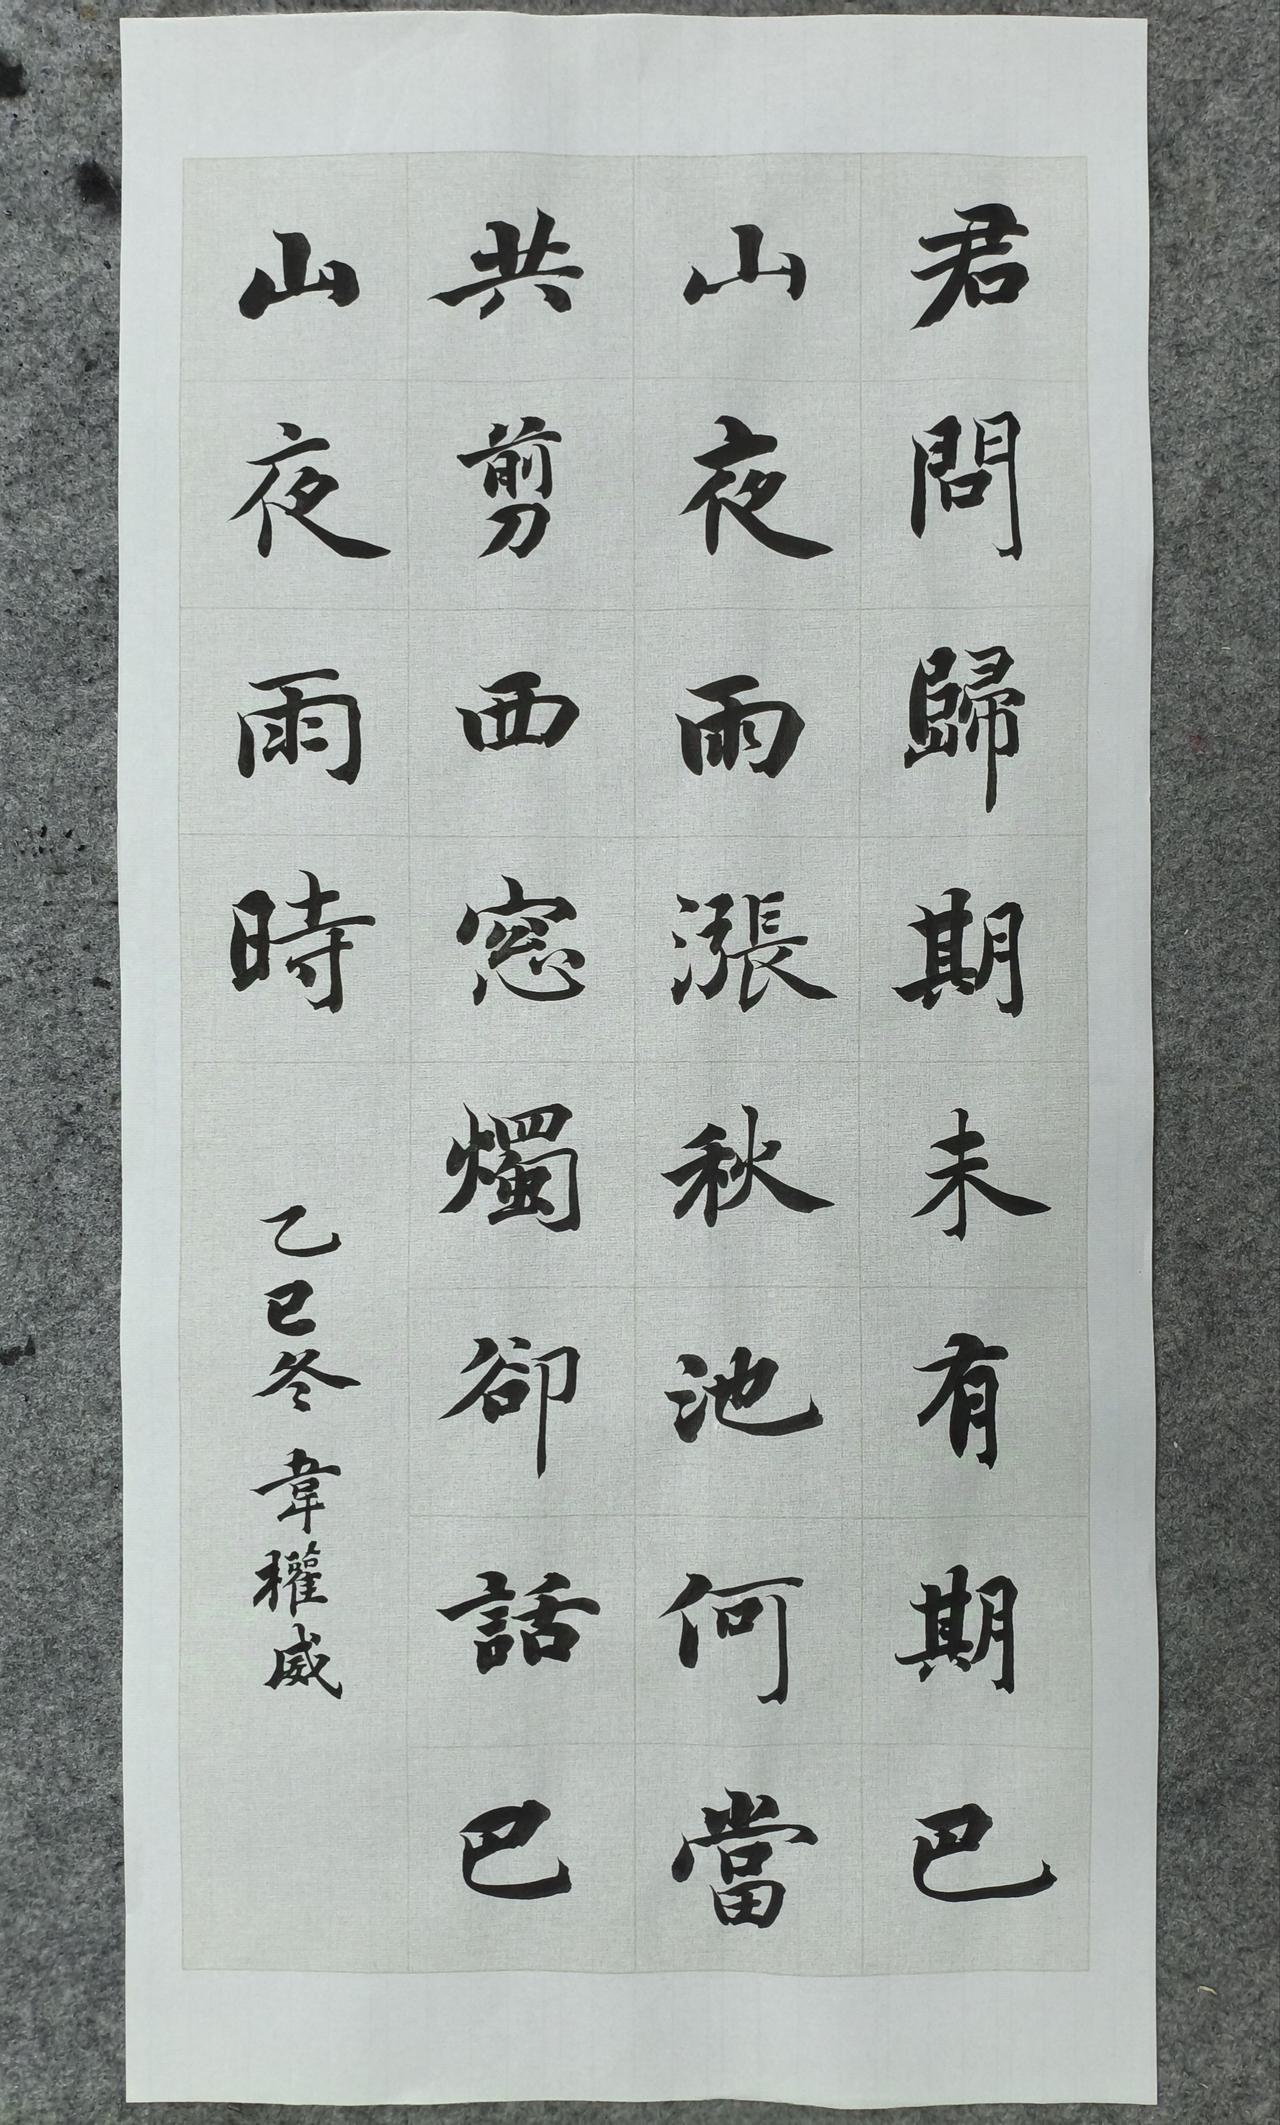 君問歸期未有期巴
山夜雨漲秋池何當
共剪西窓燭卻話巴
山夜雨時
乙巳冬 韋權威